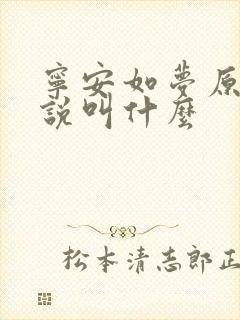 寧安如夢原
說叫什麼
松本清志郎正